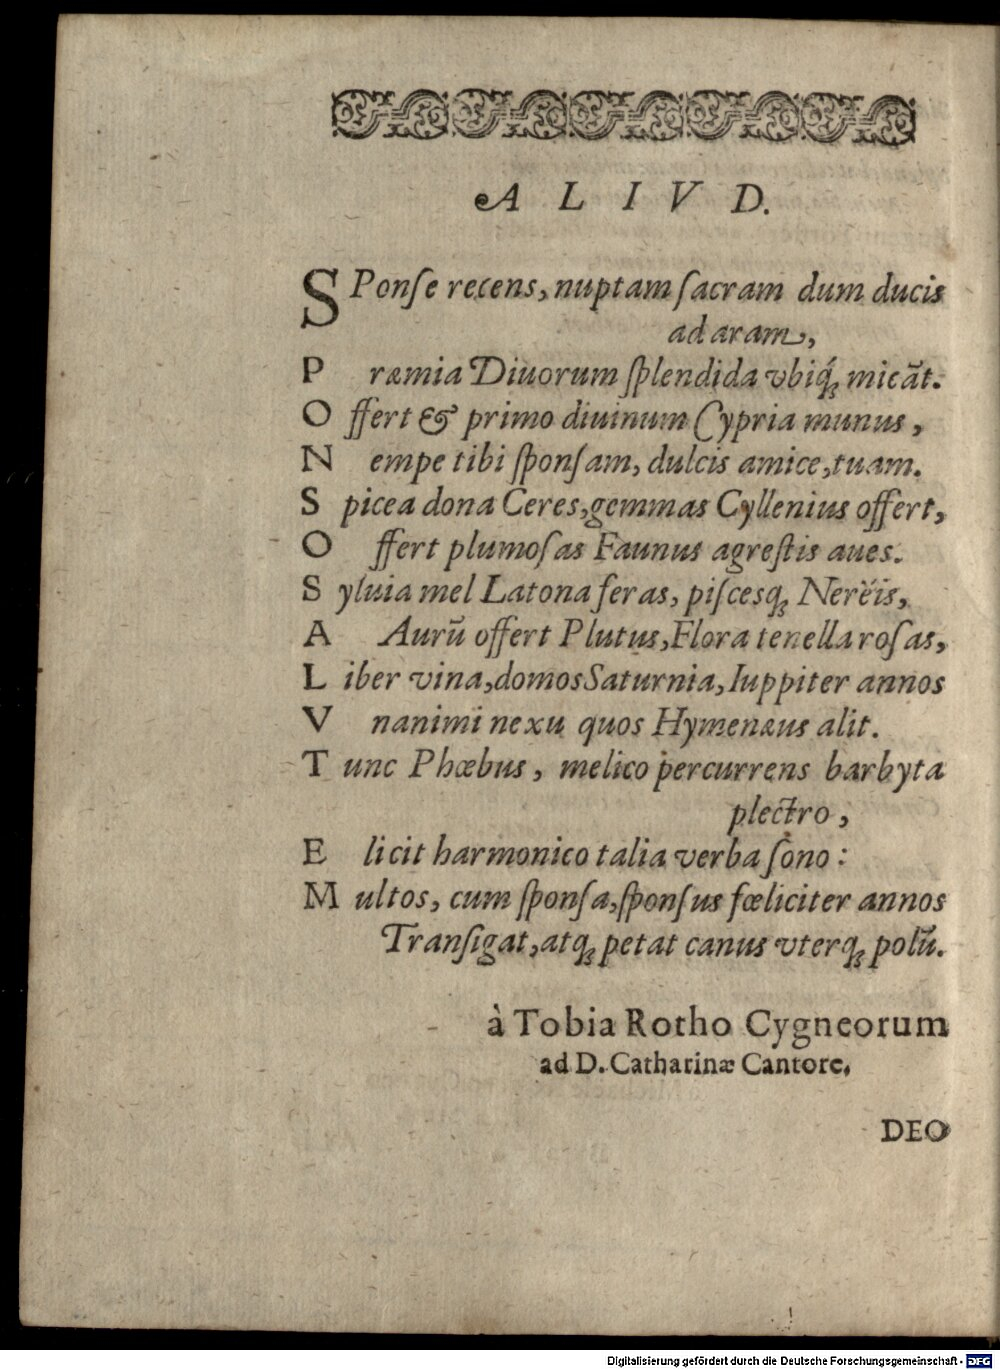 ALIVD.
SPonſe recens, nuptam ſacram dum ducis
ad aram,
Præmia Diuorum ſplendida vbiq́ꝫ micāt.
Offert & primo diuinum Cypria munus,
Nempe tibi ſponſam, dulcis amice, tuam.
Spicea dona Ceres, gemmas Cyllenius offert,
Offert plumoſas Faunus agreſtis aues.
Syluia mel Latona feras, piſcesqꝫ Nerëis,
A Aurū offert Plutus, Flora tenella roſas,
Liber vina, domos Saturnia, Iuppiter annos
Vnanimi nexu quos Hymenæus alit.
Tunc Phœbus, melico percurrens barbyta
plectro,
Elicit harmonico talia verba ſono:
Multos, cum ſponſa, ſponſus fœliciter annos
Tranſigat, atqꝫ petat canus vterqꝫ polū.
à Tobia Rotho Cygneorum
ad D. Catharinæ Cantore.
DEO
Digitalisierung gefördert durch die Deutsche Forschungsgemeinschaft - DFG